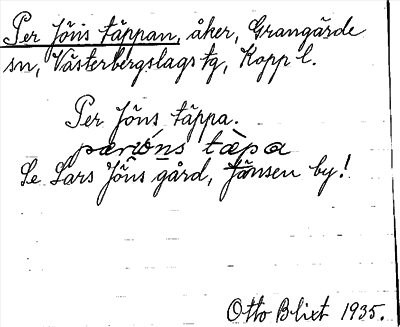 Per Jöns täppan, åker, Grangärde
sn, Västerbergslags tg, Kopp l.
Per Jöns täppa.
pærións tæ̀pa
Se Lars Jöns gård, Jänsen by!
Otto Blixt 1935.